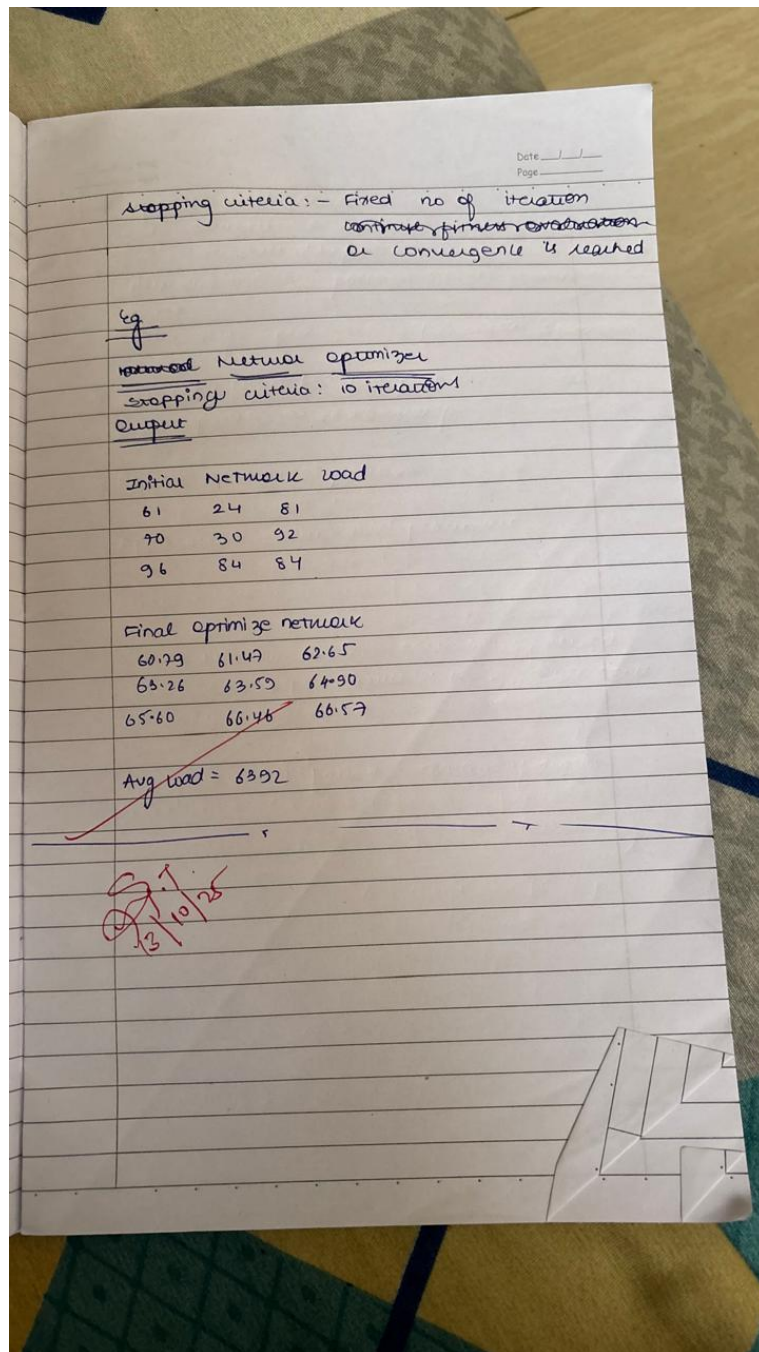 Date __/__/__
Page
stopping criteria :- Fixed no of iteration
or convergence is reached
Eg
Networ optimizer
stopping criteria : 10 iterations
Output
Initial Network load
61 24 81
70 30 92
96 84 84
Final optimize network
60.79 61.47 62.65
63.26 63.59 64.90
65.60 66.46 66.57
Avg load = 6392
13/10/25